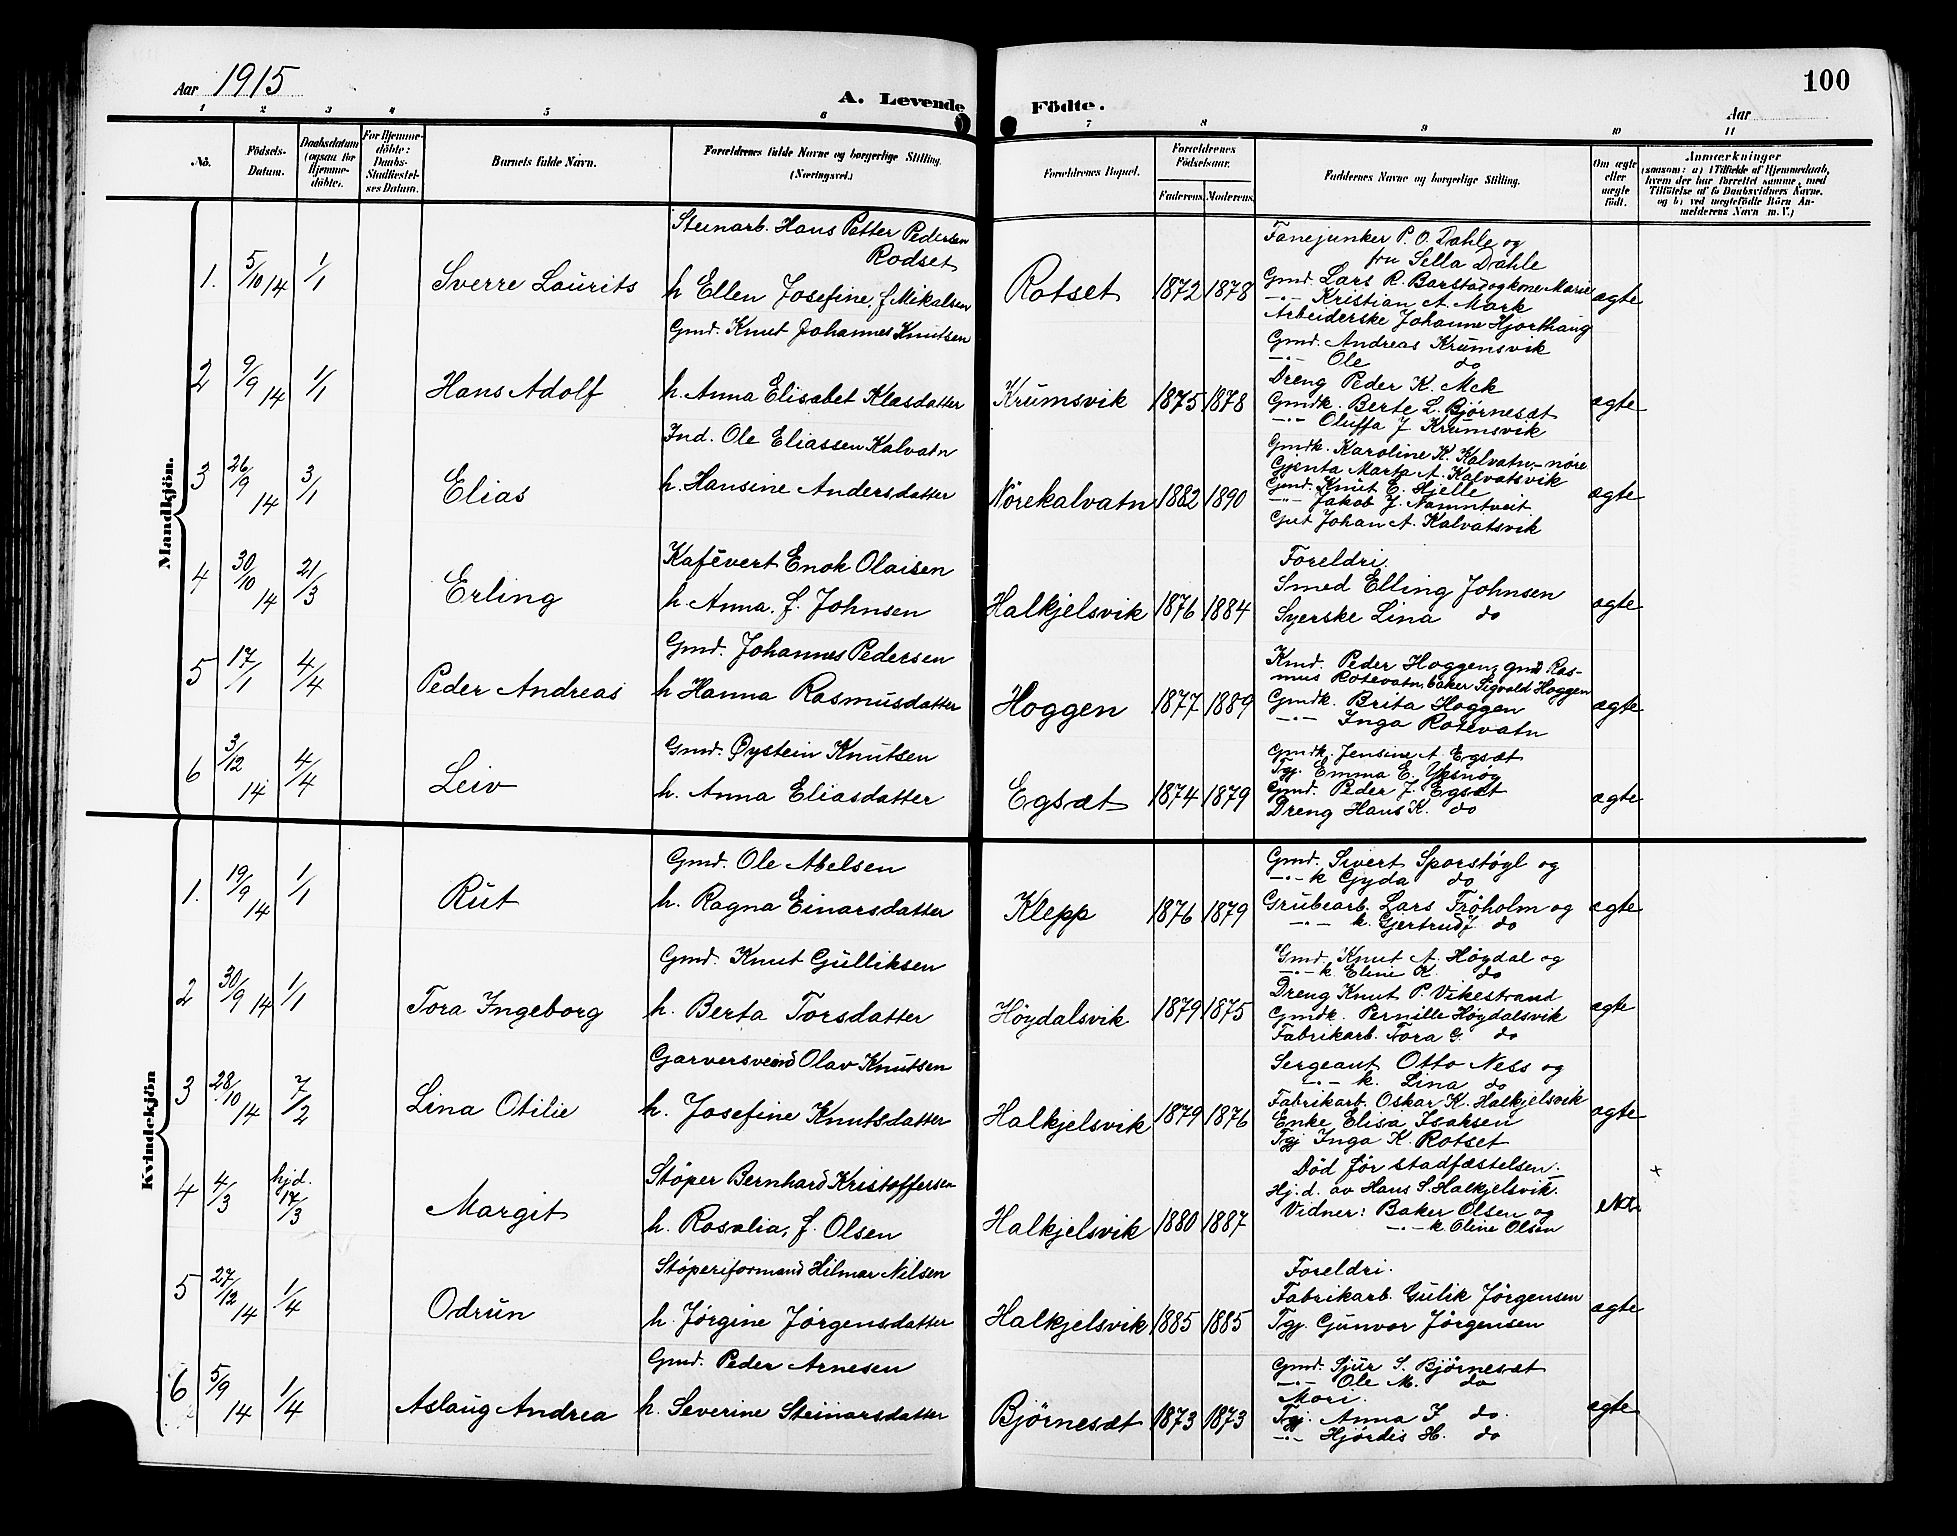 Aar 1915
A. Levende Födte.
100
Aar
1 2 3 4 5 6 7 8 9 10 11
No.
Födsels-Datum.
Daabsdatum (ogsaa for Hjemme-döbte).
For Hjemme-döbte: Daabs-Stadfæstel-ses Datum.
Barnets fulde Navn.
Forældrenes fulde Navne og borgerlige Stilling. (Næringsvei.)
Forældrenes Bopæl.
Forældrenes Födselsaar.
Faderens. Moderens.
Faddernes Navne og borgerlige Stilling.
Om ægte eller uægte födt.
Anmærkninger
(saasom: a) i Tilfælde af Hjemmedaab,
hvem der har forrettet samme, med
Tilföielse af to Daabsvidners Navne.
og b) ved uægtefödte Börn An-
melderens Navn m. V.)
Mandkjön.
1. 5/10 14 1/1 Sverre Laurits
Steinarb. Hans Petter Pedersen
Rodset
h Ellen Josefine, f Mikalsen
Rotset 1872 1878
Fanejunker P. O. Dahle og
fru Sella Dahle
Gmd. Lars R. Barstad og kone Marie
-"- Kristian A. Mark
Arbeiderske Johanne Hjorthaug
ægte
2 9/9 14 1/1 Hans Adolf
Gmd. Knut Johannes Knutsen
h. Anna Elisabet Klasdatter
Krumsvik 1875 1878
Gmd. Andreas Krumsvik
-"- Ole do
Dreng Peder K. Mek
Gmdk. Berte L. Bjørnesæt
-"- Oluffa J Krumsvik
ægte
3 26/9 14 3/1 Elias
Ind. Ole Eliassen Kalvatn
h. Hansine Andersdatter
Nörekalvatn 1882 1890
Gmdk. Karoline K. Kalvatn-nöre
Gjenta Marta A. Kalvatsvik
Gmd. Knut E. Hjelle
-"- Jakob J. Namntveit
Gut Johan A. Kalvatsvik
ægte
4 30/10 14 21/3 Erling
Kafévert Enok Olaisen
h. Anna, f. Johnsen
Halkjelsvik 1876 1884
Foreldri.
Smed Elling Johnsen
Syerske Lina do
ægte
5 17/1 4/4 Peder Andreas
Gmd. Johannes Pedersen
h Hanna Rasmusdatter
Hoggen 1877 1889
Kmd. Peder Hoggen, gmd Ras-
mus Rotevatn, baker Sigvald Hoggen
Gmdk. Brita Hoggen
-"- Inga Rotevatn
ægte
6 3/12 14 4/4 Leiv
Gmd. Øystein Knutsen
h. Anna Eliasdatter
Egsæt 1874 1879
Gmdk. Jensine A. Egsæt
Tgj. Emma E. Yksnøg
Gmd. Peder J. Egsæt
Dreng Hans K. do
ægte
Kvindekjön
1. 19/9 14 1/1 Rut
Gmd. Ole Abelsen
h. Ragna Einarsdatter
Klepp 1876 1879
Gmd. Sivert Sporstøyl og
-"- k Gyda do
Grubearb. Lars Frøholm og
-"- k. Gjertrud J. do
ægte
2 30/9 14 1/1 Tora Ingeborg
Gmd. Knut Gulliksen
h. Berta Torsdatter
Höydalsvik 1879 1875
Gmd. Knut A. Höydal og
-"- k. Eline K. do
Dreng Knut P. Vikestrand
Gmdk. Pernille Höydalsvik
Fabrikarb. Tora G. do
ægte
3 28/10 14 7/2 Lina Otilie
Garversvend Olav Knutsen
h. Josefine Knutsdatter
Halkjelsvik 1879 1876
Sergeant Otto Ness og
-"- k. Lina do
Fabrikarb. Oskar K. Halkjelsvik
Enke Elisa Isaksen
Tgj Inga K. Rotset
ægte
4 4/3 hjd. 17/3 Margit
Støper Bernhard Kristoffersen
h. Rosalia, f. Olsen
Halkjelsvik 1880 1887
Död för stadfæstelsen.
Hj.d. av Hans S. Halkjelsvik.
Vidner: Baker Olsen og
-"- k. Oline Olsen
x
5 27/12 14 1/4 Odrun
Støperiformand Hilmar Nilsen
h. Jørgine Jørgensdatter
Halkjelsvik 1885 1885
Foreldri.
Fabrikarb. Gulik Jørgensen
Tgj. Gunvor Jørgensen
ægte
6 5/9 14 1/4 Aslaug Andrea
Gmd. Peder Arnesen
h. Severine Steinarsdatter
Bjørnesæt 1873 1873
Gmd. Sjur S. Bjørnesæt
-"- Ole M. do
Mori.
Tgj. Anna J do.
-"- Hjördis H. do
ægte